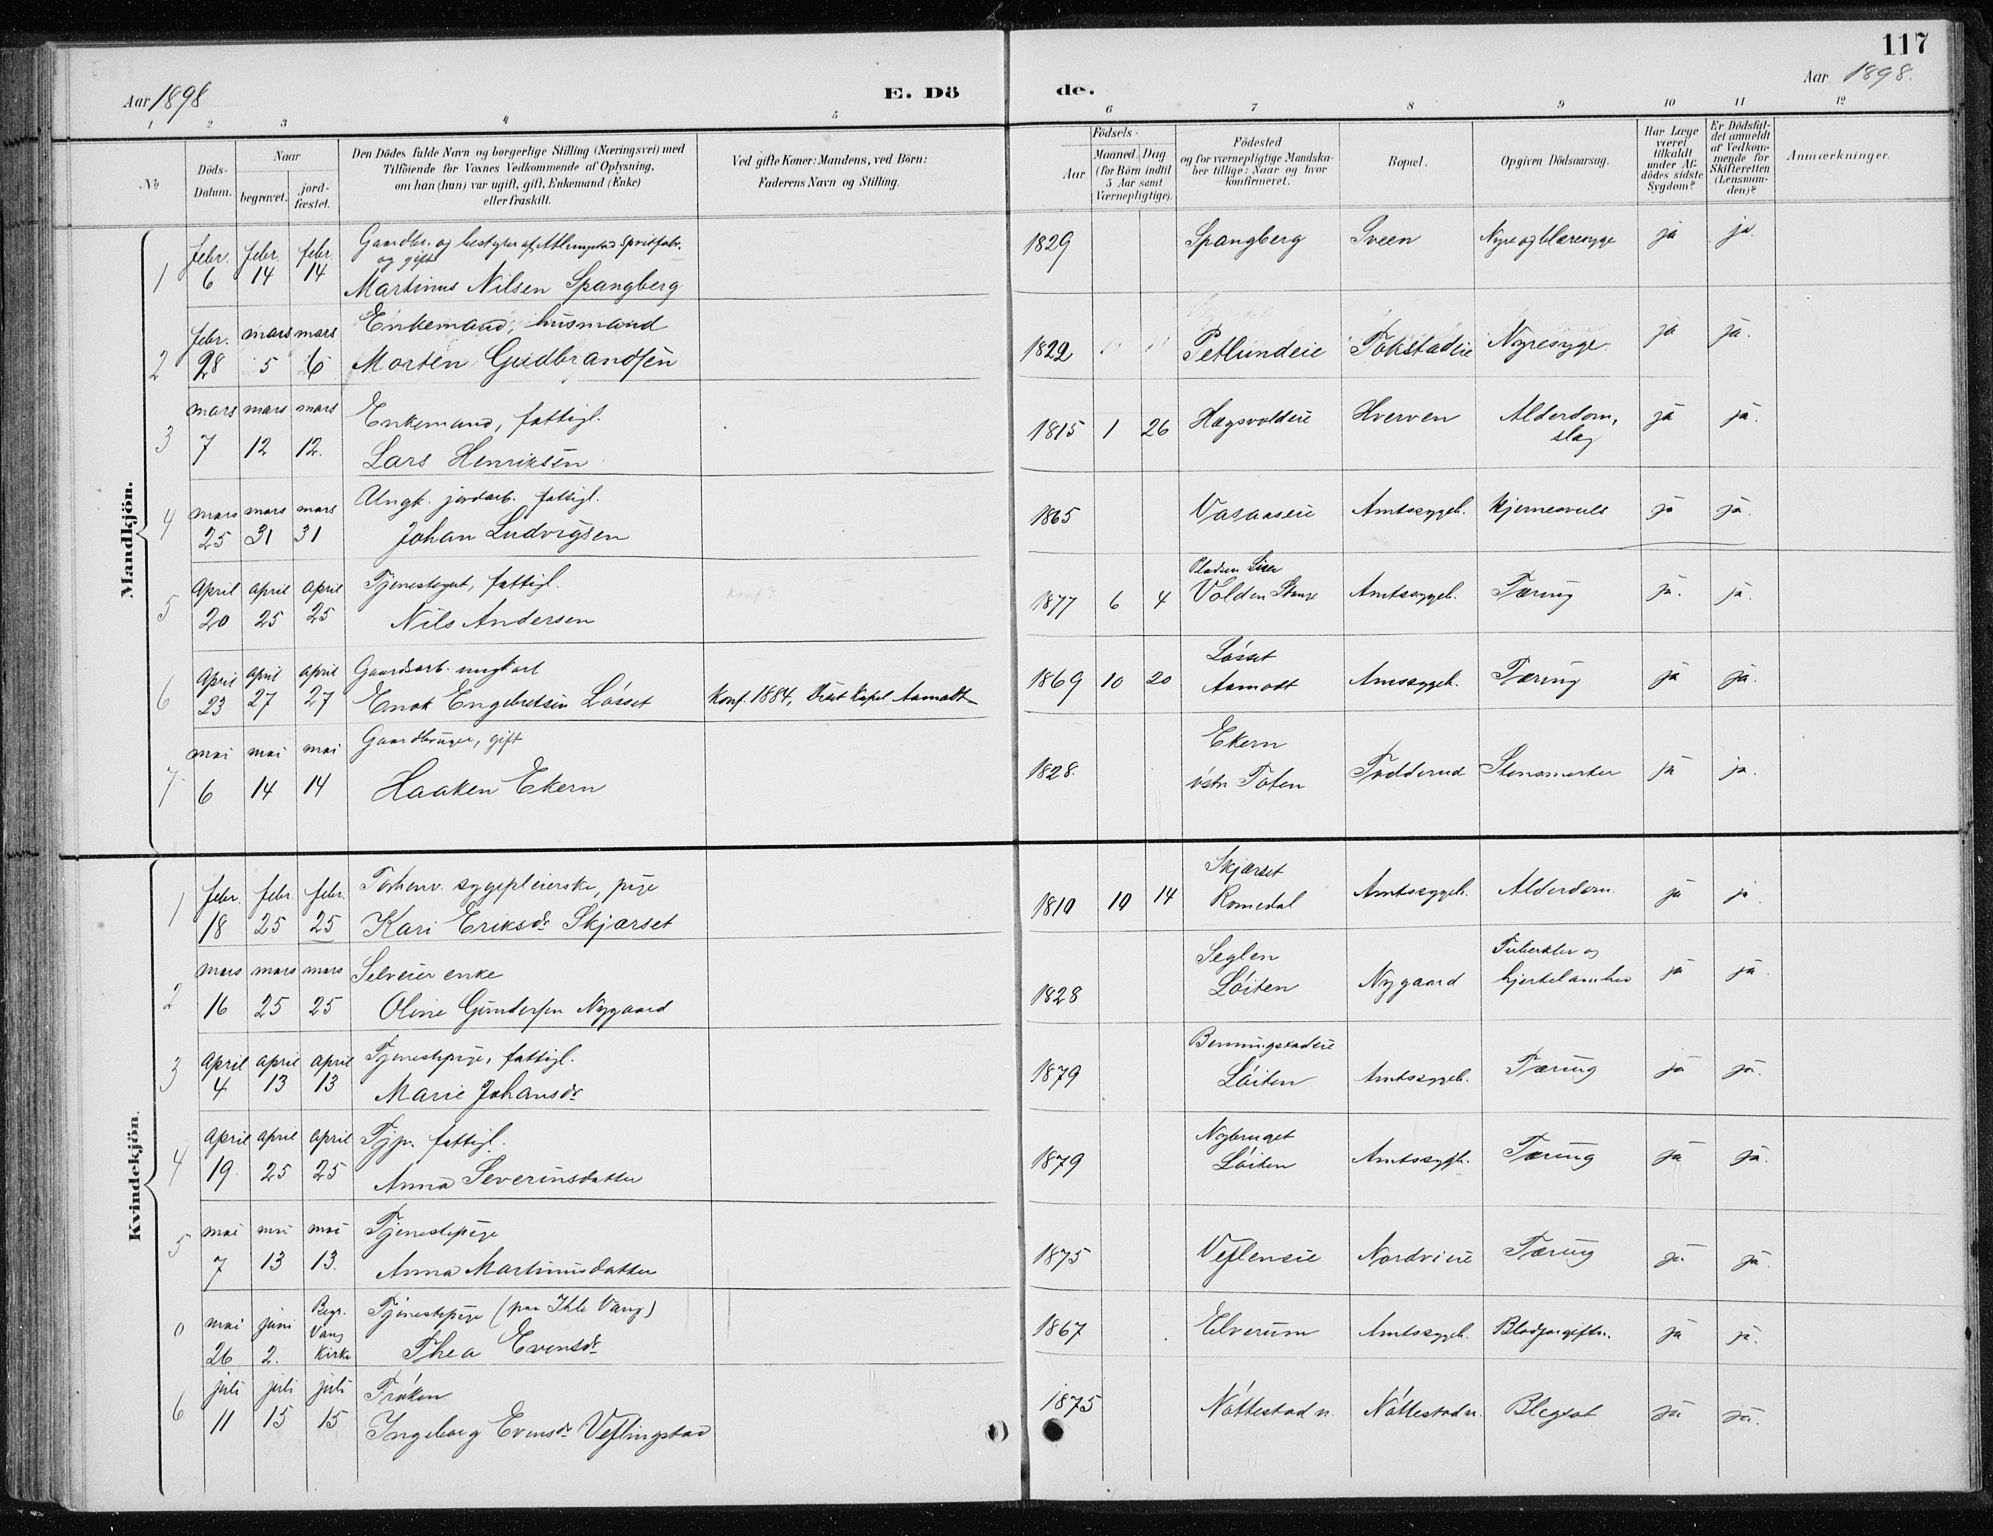 117
Aar 1898
E. Dö
de.
Aar 1898.
1 2 3 4 5 6 7 8 9 10 11 12
No
Döds-
Datum.
Naar
begravet.
jord-
fæstet.
Den Dödes fulde Navn og borgerlige Stilling (Næringsvei) med
Tilföiende for Voxnes Vedkommende af Oplysning,
om han (hun) var ugift, gift, Enkemand (Enke)
eller fraskilt.
Ved gifte Koner: Mandens, ved Börn:
Faderens Navn og Stilling.
Födsels-
Aar
Maaned. Dag
(for Börn indtil
5 Aar samt
Værnepligtige).
Födested
og for værnepligtige Mandska-
ber tillige: Naar og hvor
konfirmeret.
Bopæl.
Opgiven Dödsaarsag.
Har Læge
været
tilkaldt
under Af-
dödes sidste
Sygdom?
Er Dödsfal-
det anmeldt
af Vedkom-
mende for
Skifteretten
(Lensman-
den)?
Anmærkninger.
Mandkjön.
Gaardbr. og bestyrer af Atlungstad Spritfabr.
og gift
1 febr. 6 febr. 14 febr. 14 Martinus Nilsen Spangberg 1829 Spangberg Sveen Nyre og blæresyge ja ja
Enkemand, husmand
2 febr. 28 mars 5 mars 6 Morten Gudbrandsen 1822 Petlundeie Tokstadeie Nyresyge. ja ja.
Enkemand, fattigl.
3 mars 7 mars 12 mars 12. Lars Henriksen 1815 1 26 Hægsvoldeie Hverven Alderdom, slag ja ja.
Ungk. jordarb. fattigl.
4 mars 25 mars 31 mars 31 Johan Ludvigsen 1865 Vasaaseie Amtssygeh. ja ja.
Tjenestegut, fattigl.
5 April 20 April 25 April 25 Nils Andersen Konf? 1877 6 4 Pladsen Volden Stange Amtssygeh. Tæring ja. ja.
Gaardsarb. ungkarl
6 April 23 April 27 April 27 Enok Engebretsen Løsset Konf. 1884, Aamodt 1869 10 20 Løsset Aamodt Amtssygeh. Tæring ja ja.
Gaardbruger, gift
7 mai 6 mai 14 mai 14 Haaken Ekern 1828. Ekern østr Toten Fodderud Stensmerter ja ja.
Kvindekjön.
Forhenv. sygepleierske, pige
1 febr. 18 febr. 25 febr. 25 Kari Eriksdr Skjærset 1810 10 14 Skjærset Romedal Amtssygeh. Alderdom. ja ja
Selveier enke
2 mars 16 mars 25 mars 25 Oline Gundersen Nygaard 1828 Seglen Løiten Nygaard Tuberkler og ja ja
Tjenestepige, fattigl.
3 April 4 April 13 April 13 Marie Johansdr 1879 Benningstadeie Løiten Amtssygeh. Tæring ja ja.
Tjp. fattigl.
4 April 19. April 25 April 25 Anna Severinsdatter 1879 Nybruget Løiten Amtssygh. Tæring ja ja.
Tjenestepige
5 mai 7 mai 13 mai 13. Anna Martinusdatter 1875 Veflenseie Nordvieie Tæring ja. ja.
Tjenestepige (paa Ihle Vang)
0 mai 26 juni 2. Begr. Vang Kirke Thea Evensdr 1867 Elverum Amtssygeh. Blodforgiftn. ja ja.
Frøken
6 juli 11 juli 15 juli 15 Ingeborg Evensdr Veflingstad 1875 Nøttestad n. Nøttestad n. Blegsot ja ja.